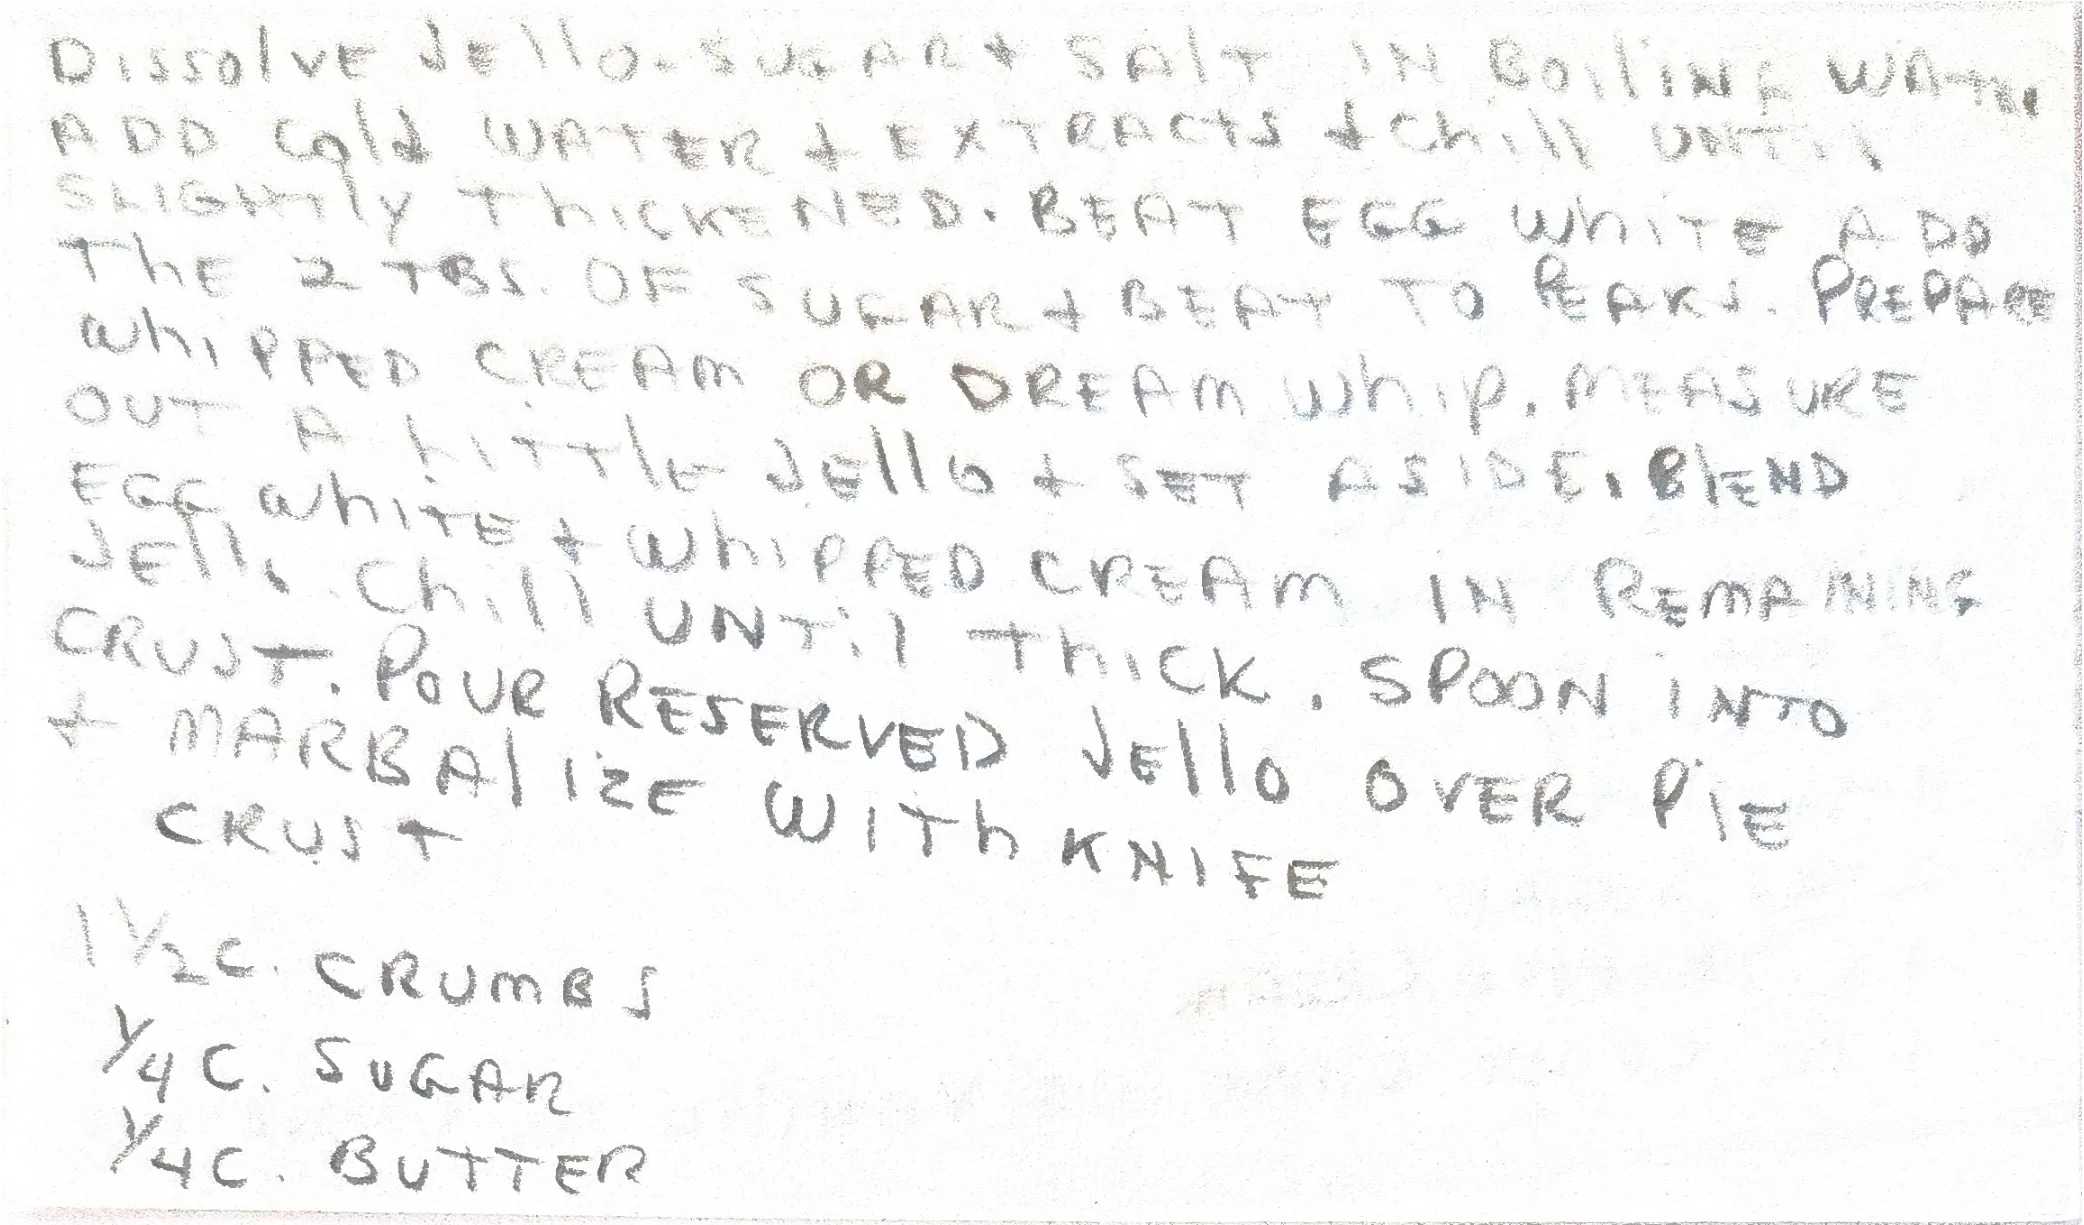 Dissolve Jello-SUGAR + SALT IN BOILING WATER
ADD Cold WATER + EXTRACTS + Chill UNTIL
SLIGHTLY THICKENED. BEAT EGG WHITE ADD
THE 2 TBS. OF SUGAR + BEAT TO PEAKS. PREPARE
WHIPPED CREAM OR DREAM WHIP. MEASURE
OUT A LITTLE JELLO + SET ASIDE. BLEND
EGG WHITE + WHIPPED CREAM IN REMAINING
JELLO. Chill UNTIL THICK. SPOON INTO
CRUST. POUR RESERVED JELLO OVER PIE
+ MARBALIZE WITH KNIFE
CRUST
1 1/2 C. CRUMBS
1/4 C. SUGAR
1/4 C. BUTTER